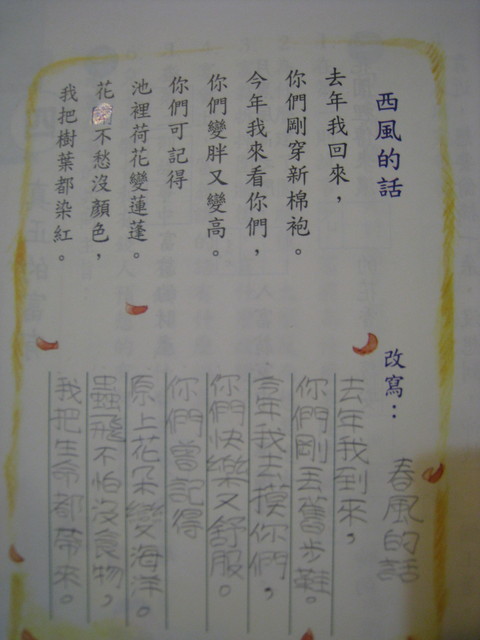 西風的話
去年我回來，
你們剛穿新棉袍。
今年我來看你們，
你們變胖又變高。
你們可記得
池裡荷花變蓮蓬。
花不愁沒顏色，
我把樹葉都染紅。
改寫：春風的話
去年我到來，
你們剛丟舊步鞋。
今年我去摸你們，
你們快樂又舒服。
你們曾記得
原上花朵變海洋。
蟲飛不怕沒食物，
我把生命都帶來。